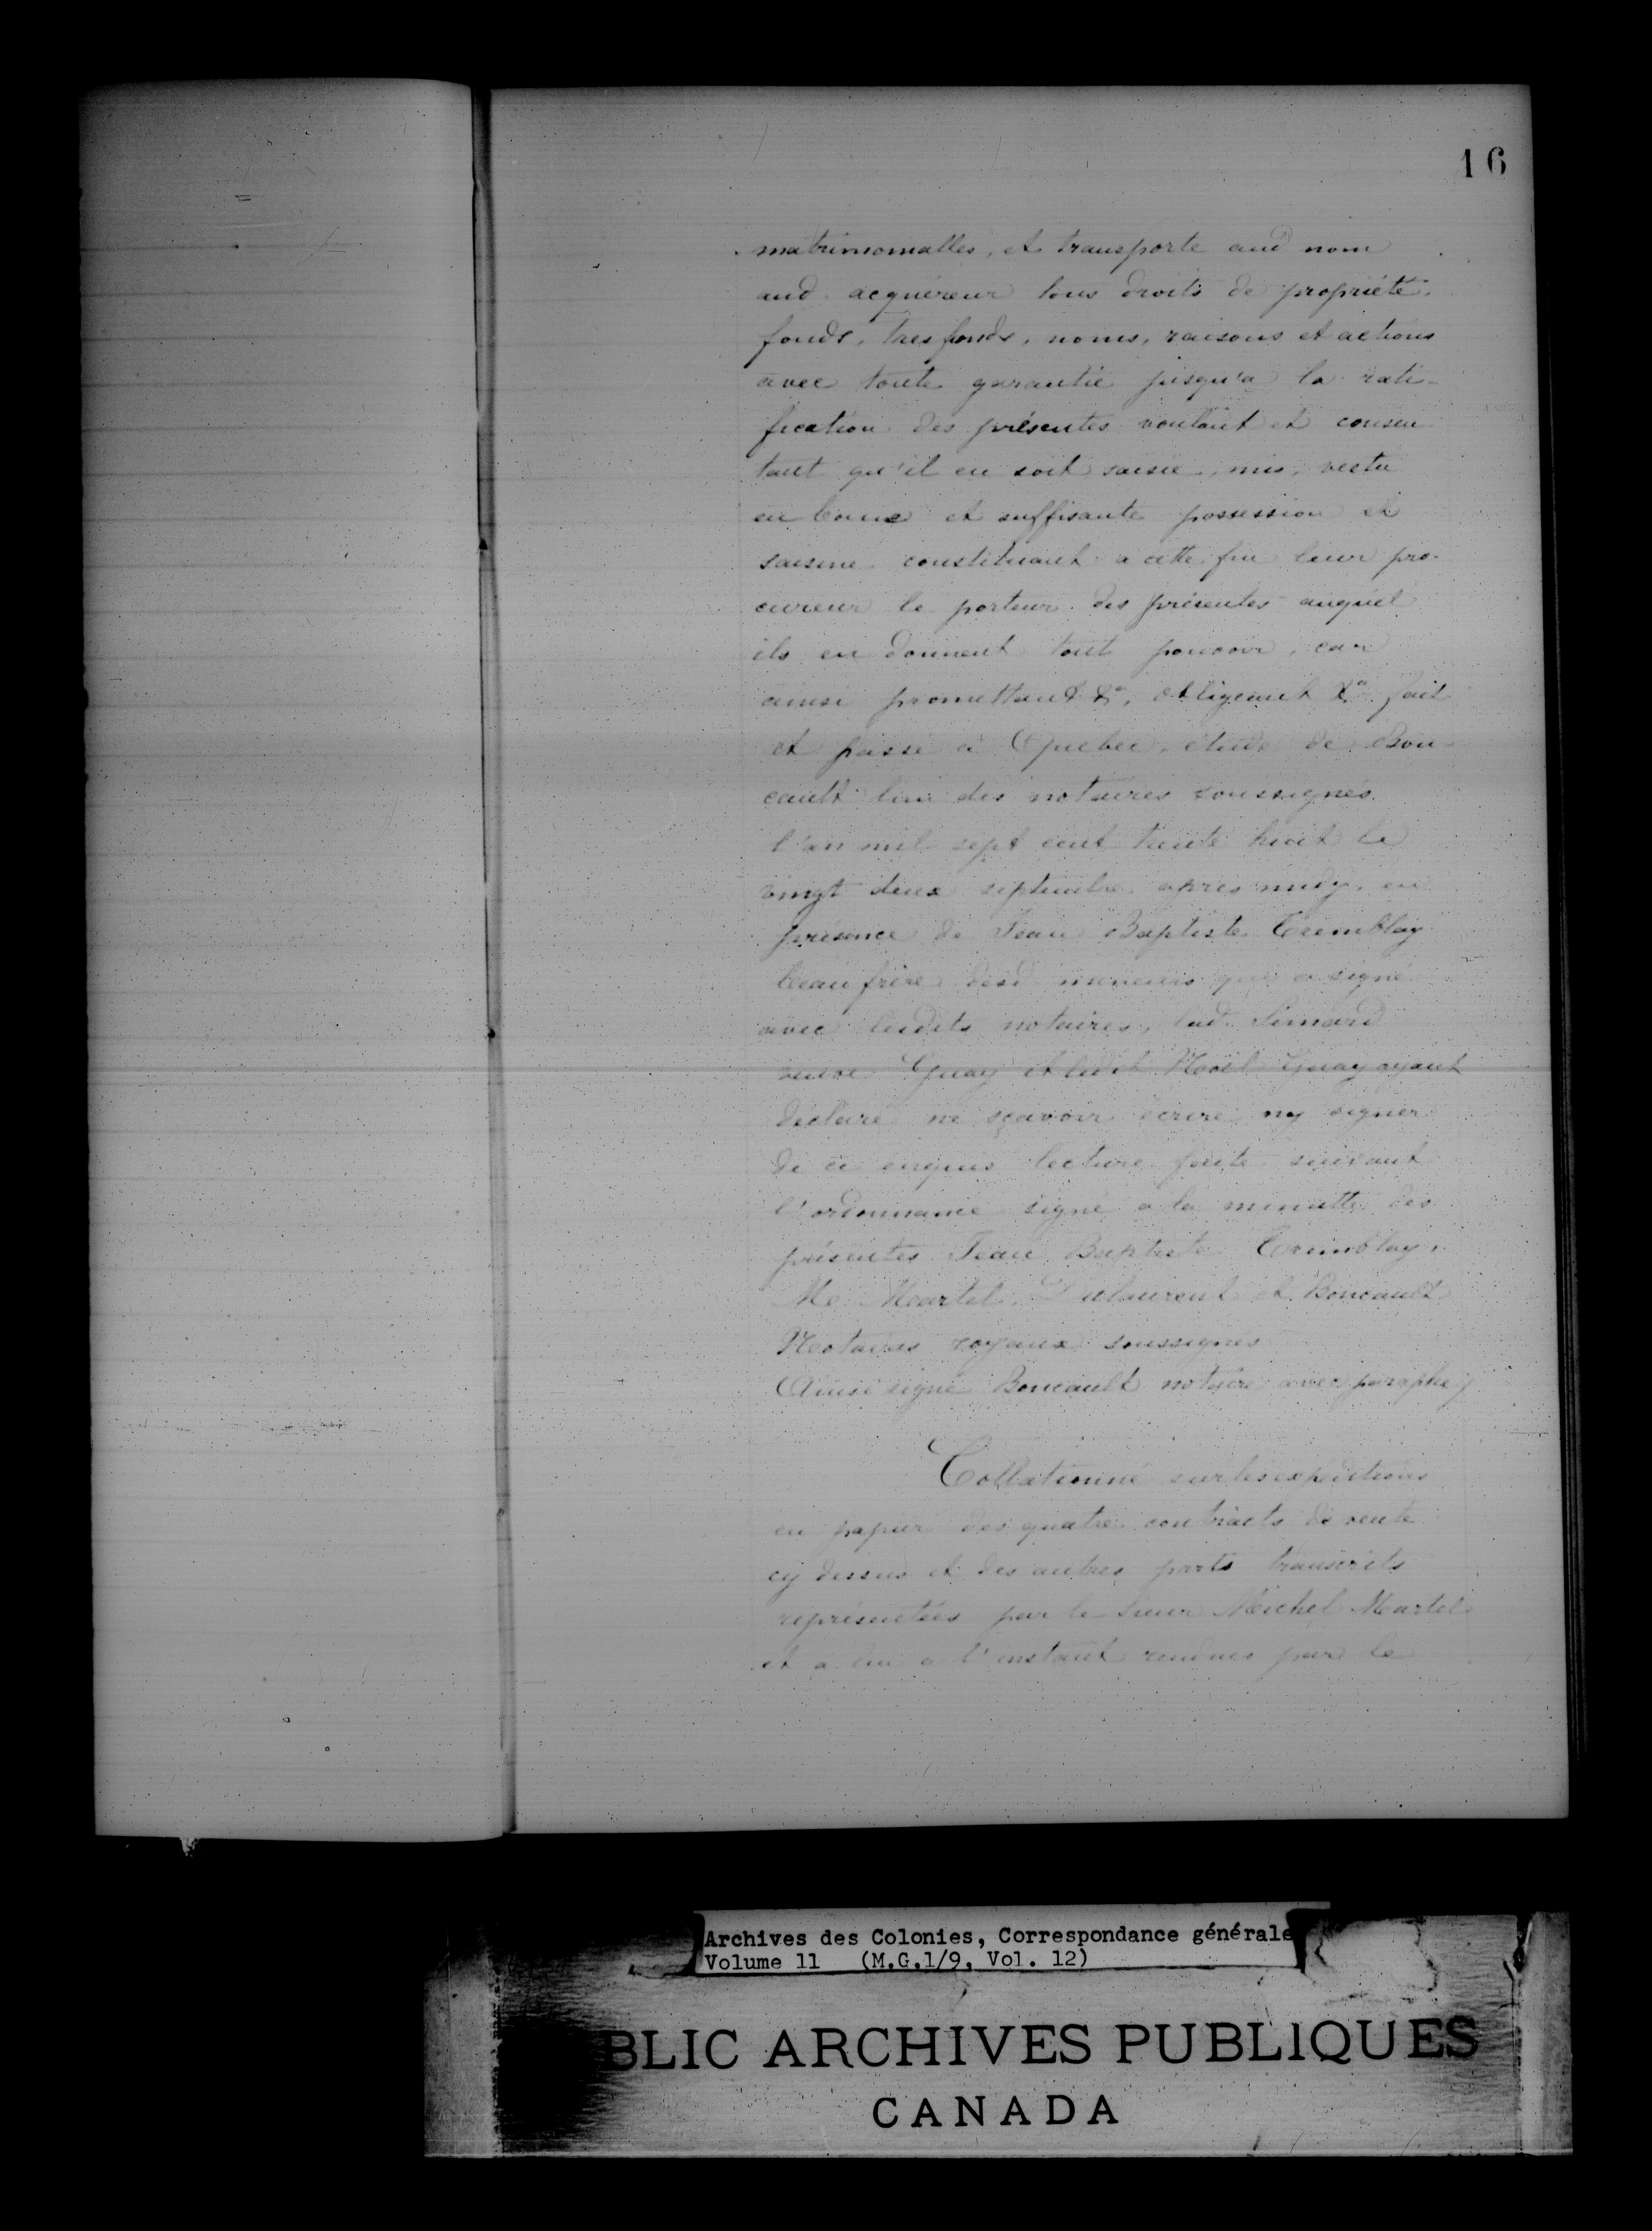 16
matrimomalles, et transporte aud nom
aud. acquéreur tous droits de propriété,
fonds, tres fonds, noms, raisons et actions
avec toute garantie jusqu'a la rati-
fication des présentes voulant et consen
tant qu'il en soit saisie, mis, vestu
en bonne et suffisante possession et
saisine constituant a cette fin leur pro-
cureur le porteur des présentes auquel
ils en donnent tout pouvoir, car
ainsi promettant &a, obligeant &a fait
et passé à Quebec, étude de Bou-
cault l'un des notaires soussignés.
l'an mil sept cent trente huit le
vingt deux septembre après midy, en
présence de Jean Baptiste Tremblay
beau frère desd mineurs qui a signé
avec lesdits notaires, lad. Simard
veuve Guay et ledit Noël Guay ayant
declaré ne sçavoir écrire ny signer
de ce enquis lecture faite suivant
l'ordonnance signé a la minutte des
présentes Jean Baptiste Tremblay,
Me Martel, Dulaurent et Boucault
Notaires royaux soussignés
Ainsi signé Boucault notaire avec paraphe
Collationné sur les expéditions
en papier des quatre contracts de vente
cy dessus et des autres parts transcrits
représentées par le Sieur Michel Martel
et a lui a l'instant rendues par le
Archives des Colonies, Correspondance générale
Volume 11 (M.G.1/9, Vol. 12)
BLIC ARCHIVES PUBLIQUES
CANADA